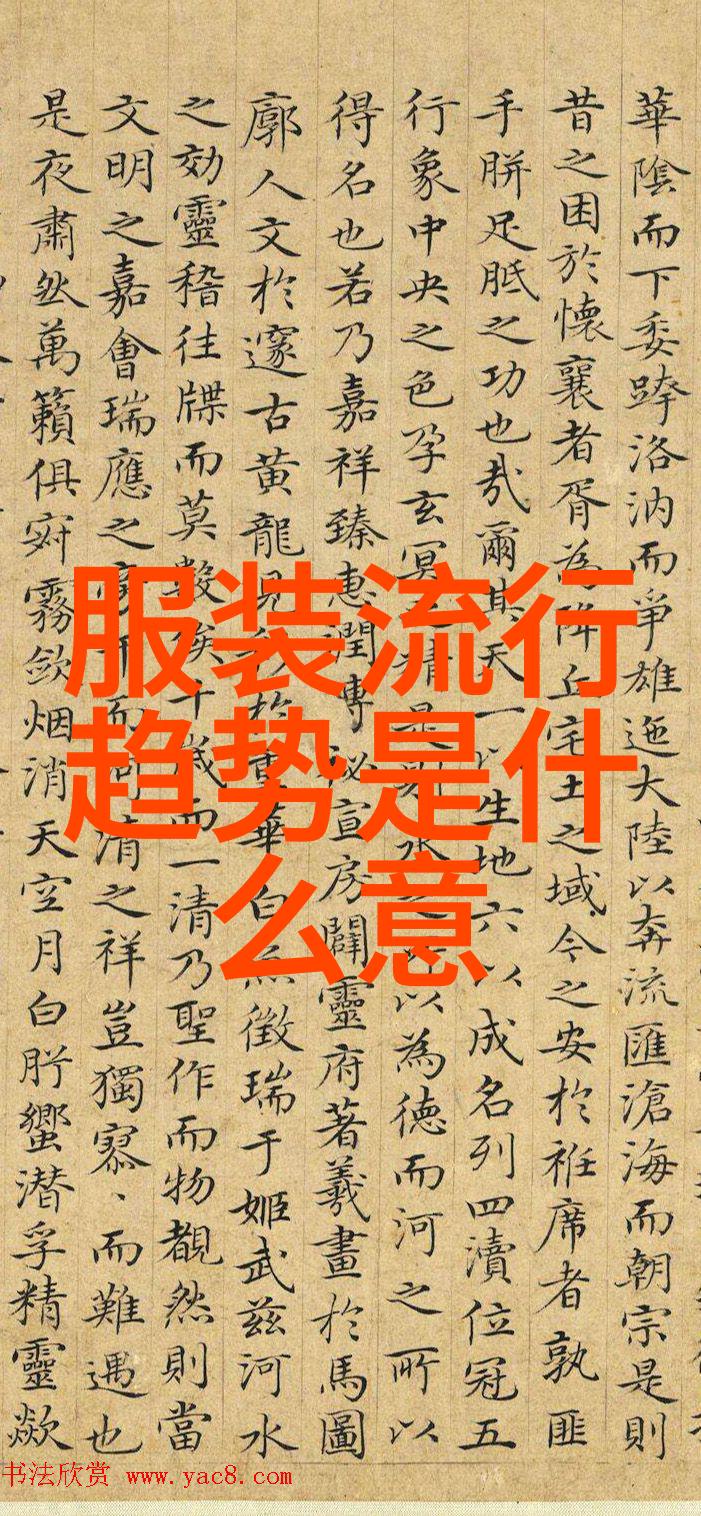 服装流行
趋势是什
么意
華陰而下委跨洛汭而爭雄迤大陸以奔流匯滄海而朝宗是則
昔之困於懷襄者胥為降丘宅土之域今之安於袵席者孰匪
手胼足胝之功也哉爾其天一以生地六以成名列四瀆位冠五
行象中央之色孕玄冥之精是則水之所以為德而河之所以
得名也若乃嘉祥臻惠潤博秘宣房闢靈府著羲畫於馬圖
廓人文於邃古黃龍見於重華白魚徵瑞于姬武茲河水
之効靈稽往牒而莫數俟千歲而一清乃聖作而物覩然則當
文明之嘉會瑞應之而河清之祥豈獨寡、而難遇也
是夜肅然萬籟俱寂霧斂烟消天空月白肸蠁潜孚精靈歘
书法欣赏 www.yac8.com